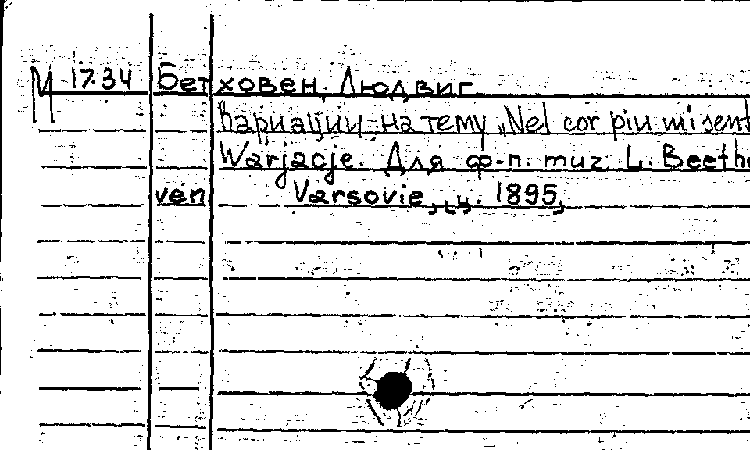 М 17.34 Бетховен, Людвиг
Вариации на тему „Nel cor piu mi sent
Warjacje. Для ф-п. muz L. Beetho
ven Varsovie, ц. 1895,